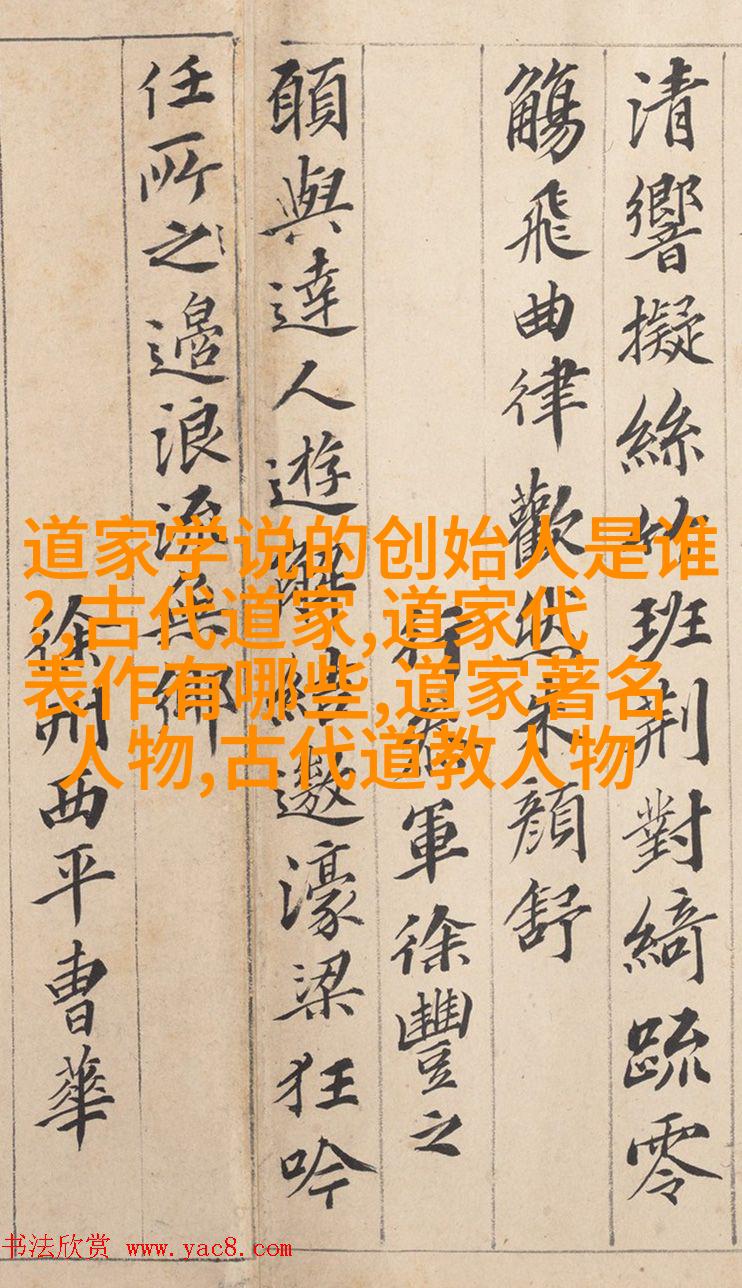 清響擬絲竹班荆對綺疏零
觴飛曲律歡然朱顔舒
行參軍徐豐之
願與達人遊解結遨濠梁狂吟
任所之浪流無鄉
徐州西平曹華
道家学说的创始人是谁
?,古代道家,道家代
表作有哪些,道家著名
人物,古代道教人物
书法欣赏 www.yac8.com